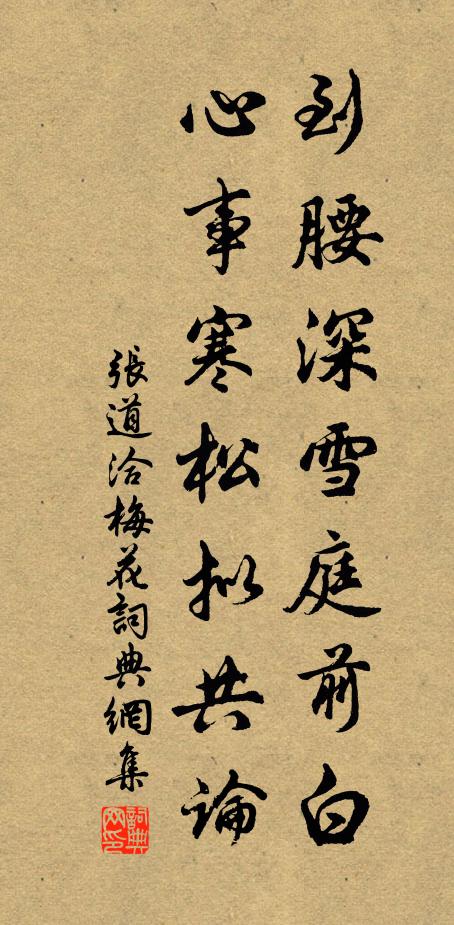 到腰深雪庭前白
心事寒松拟共論
張道洽梅花詞典網集
詞典網印